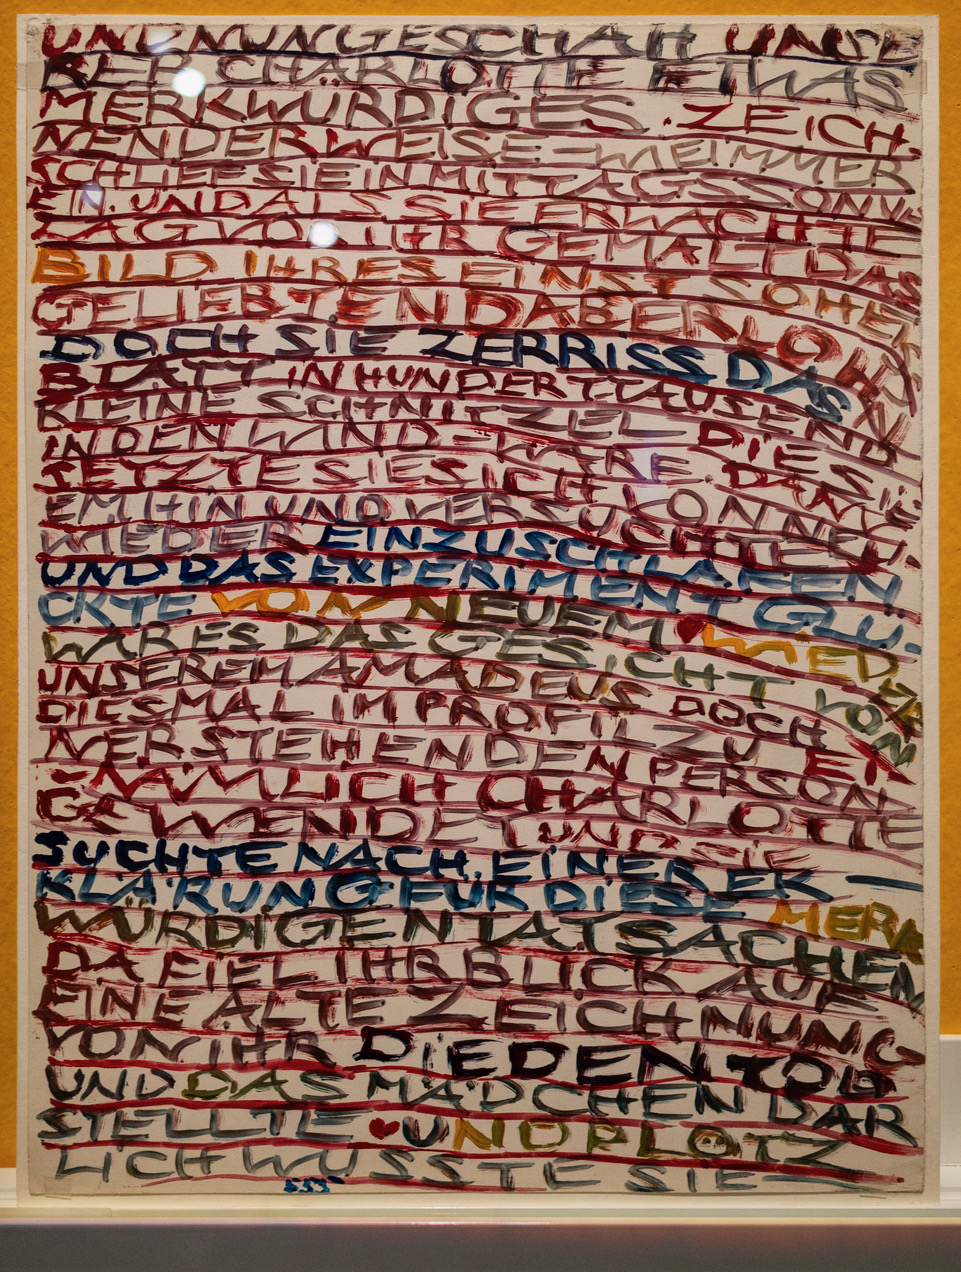 UND NUN GESCHAH UNSE
RER CHARLOTTE ETWAS
MERKWÜRDIGES. ZEICH.
NENDERWEISE – WIE IMMER
SCHLIEF SIE IN MITTAGSSONNE
EIN. UND ALS SIE ERWACHTE
LAG VOR IHR GEMALT DAS
BILD IHRES EINST SO HEISS
GELIEBTEN DABERLOHN
DOCH SIE ZERRISS DAS
BLATT IN HUNDERTTAUSEND
KLEINE SCHNITZEL DIE SIE
IN DEN WIND – WARE DANN
SETZTE SIE SICH VON NEU.
EM HIN UND VERSUCHTE
WIEDER EINZUSCHLAFEN.
UND DAS EXPERIMENT GLÜ.
CKTE VON NEUEM WIEDER
WAR ES DAS GESICHT VON
UNSEREM AMADEUS DOCH
DIESMAL IM PROFIL ZU EI
NER STEHENDEN PERSON
– NÄMLICH CHARLOTTE
GEWENDET UND SIE
SUCHTE NACH EINER ER –
KLÄRUNG FÜR DIESE MERK
WÜRDIGEN TATSACHEN
DA FIEL IHR BLICK AUF
EINE ALTE ZEICHNUNG
VON IHR DIE DEN TOD
UND DAS MÄDCHEN DAR
STELLTE UND PLÖTZ
LICH WUSSTE SIE –
555